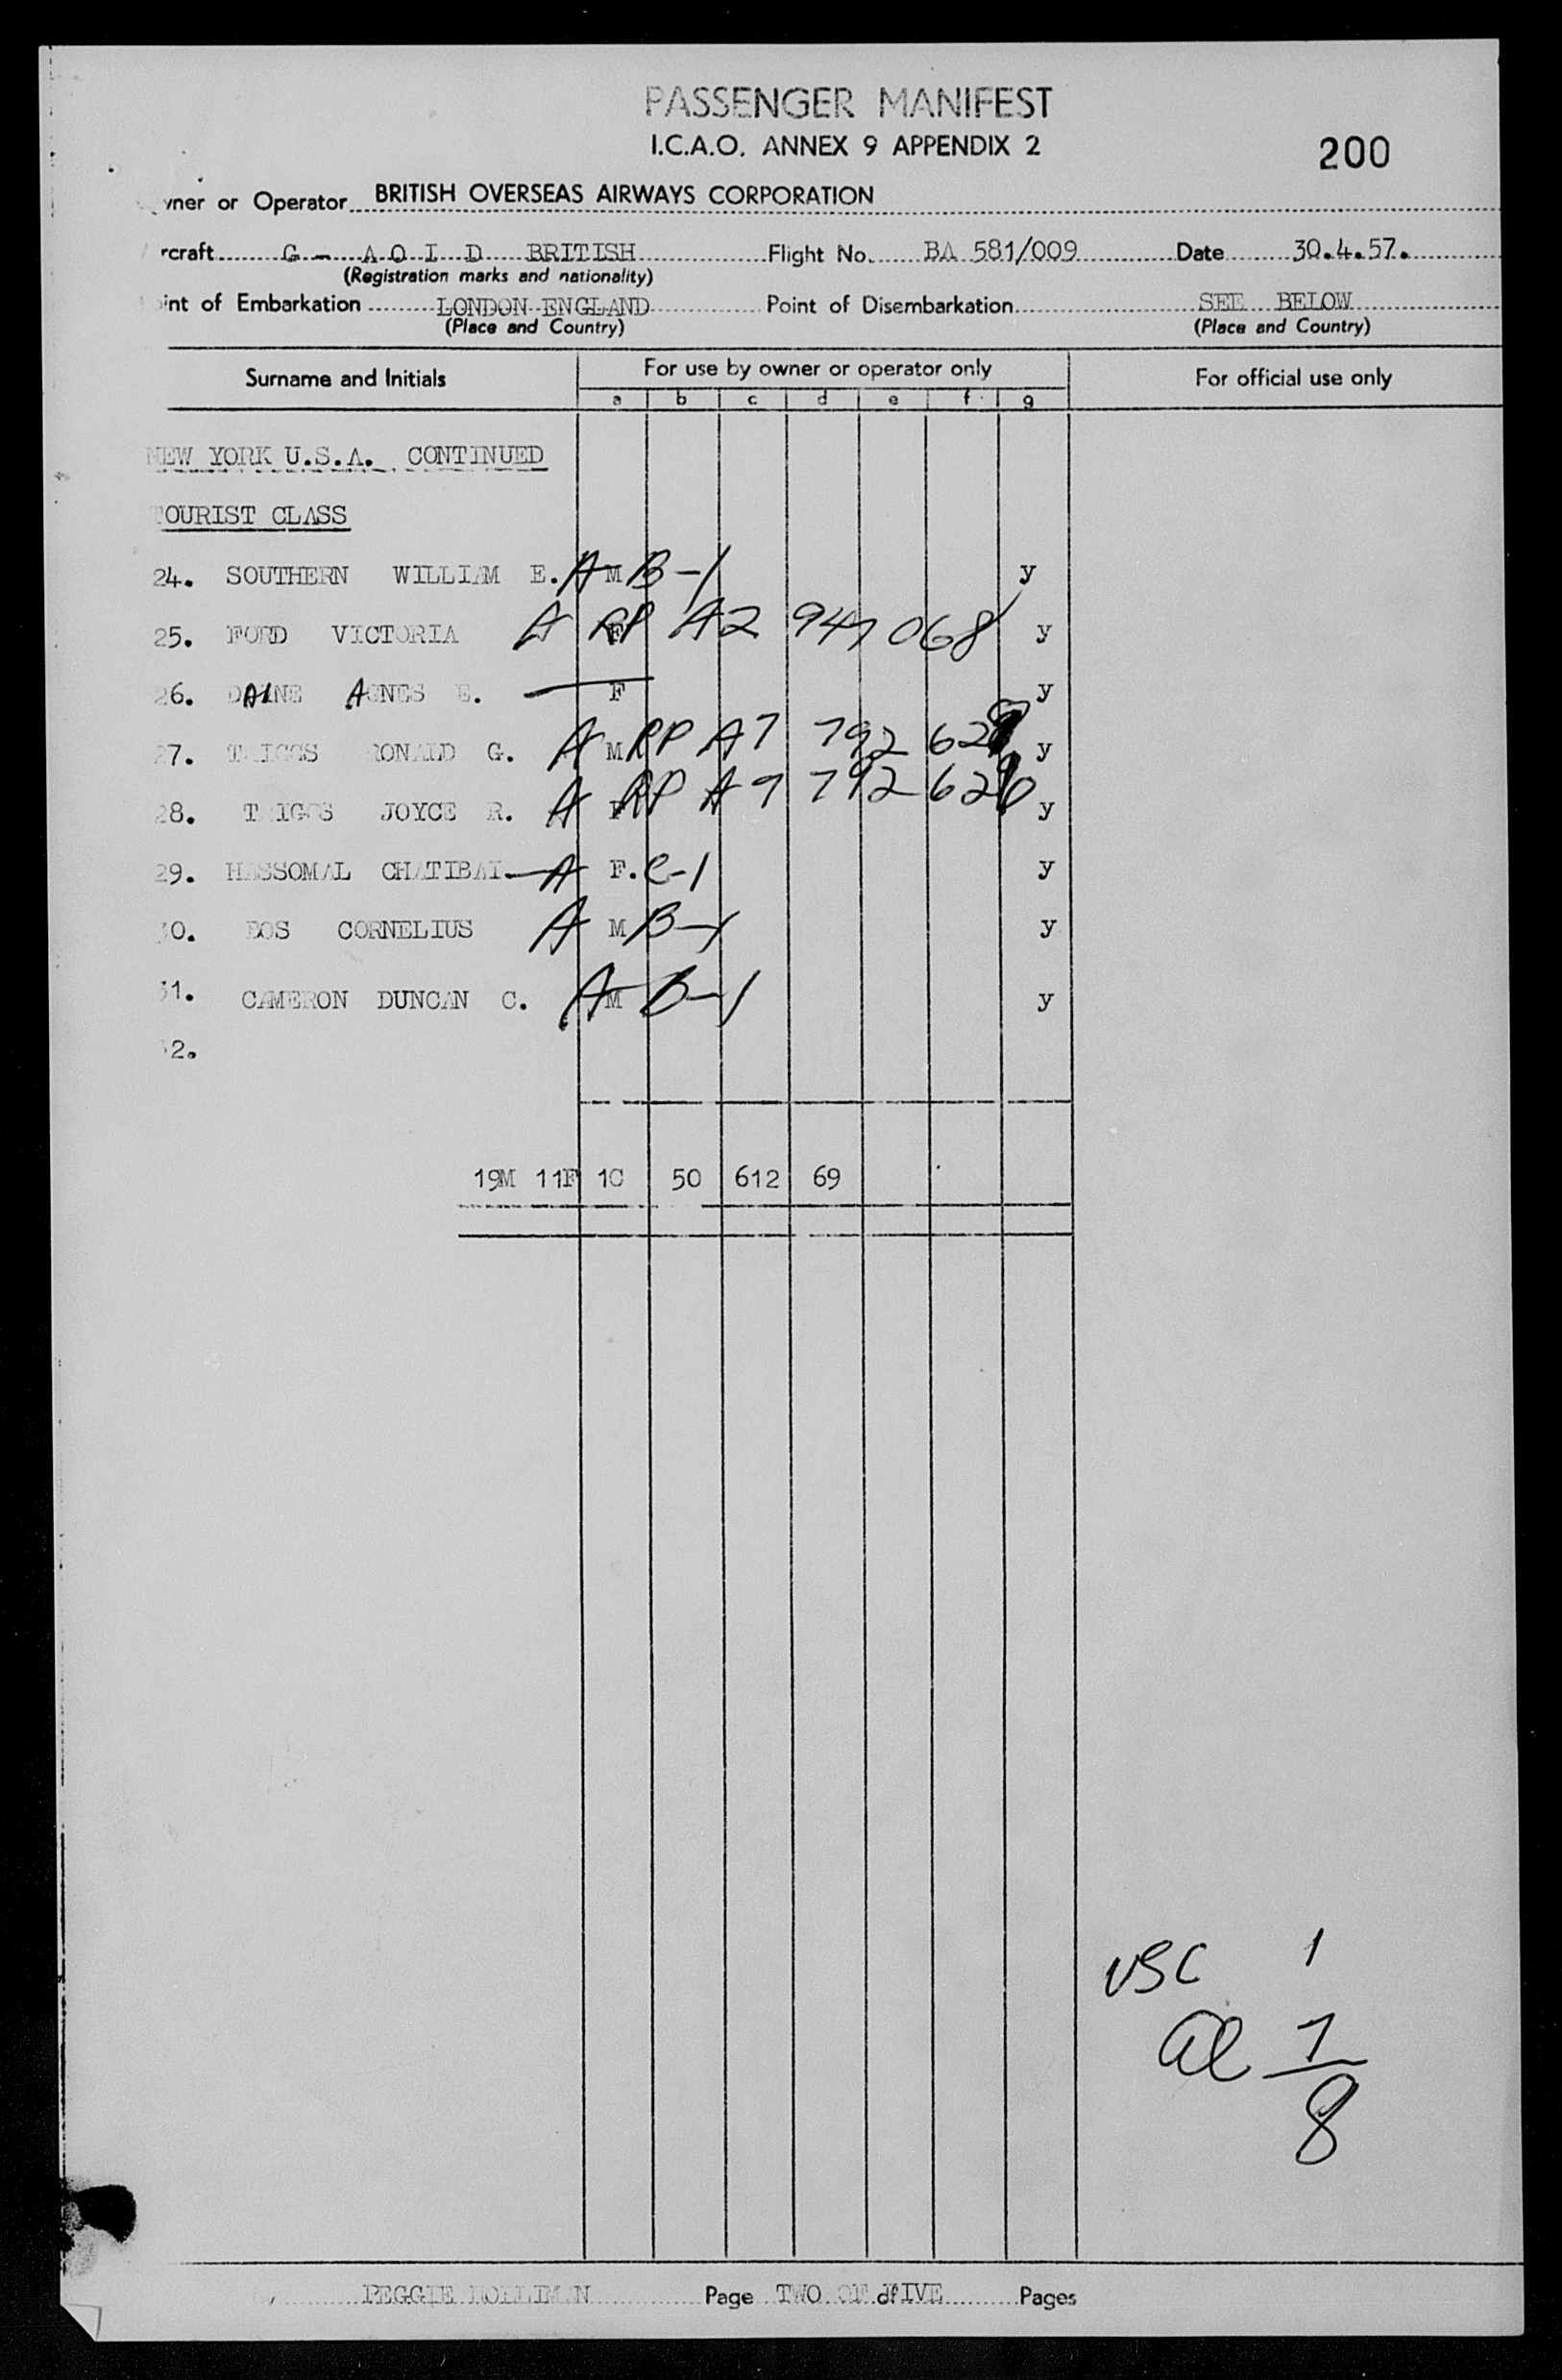 PASSENGER MANIFEST
I.C.A.O. ANNEX 9 APPENDIX 2
200
wner or Operator BRITISH OVERSEAS AIRWAYS CORPORATION
rcraft G - A O I D BRITISH Flight No. BA 581/009 Date 30.4.57.
(Registration marks and nationality)
int of Embarkation LONDON ENGLAND Point of Disembarkation SEE BELOW
(Place and Country) (Place and Country)
Surname and Initials For use by owner or operator only For official use only
a b c d e f g
NEW YORK U.S.A. CONTINUED
TOURIST CLASS
24. SOUTHERN WILLIAM E. A M B-1 y
25. FORD VICTORIA A RP F A2 947 068 y
26. AGNES E. F y
27. TRIGGS RONALD G. A M RP A7 792 y
28. TRIGGS JOYCE R. A RP A7 792 y
29. HASSOMAL CHATIBAI A F. C-1 y
30. CORNELIUS A M B-1 y
31. CAMERON DUNCAN C. A M B-1 y
32.
19M 11F 1C 50 612 69
USC 1
al 7
8
PEGGIE Page TWO OF of FIVE Pages